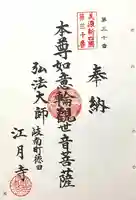 第三十番
美濃新四国
第三十番
奉納
本尊如意輪觀世音菩薩
弘法大師
岐南町徳田
江月寺